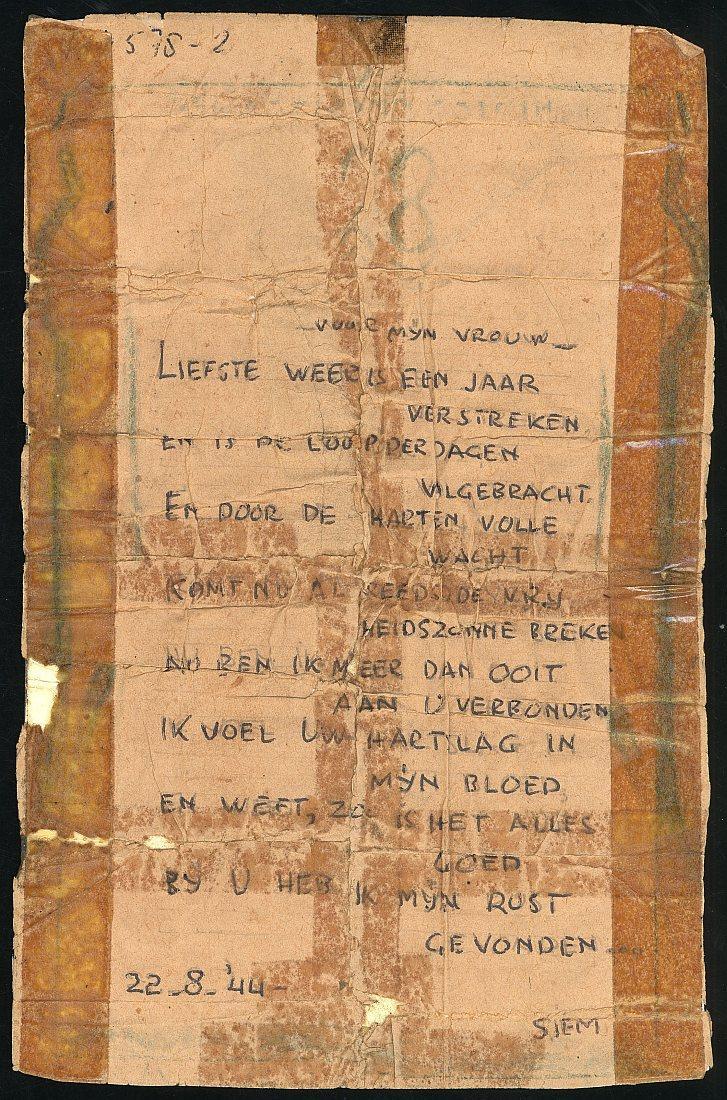 578-2
28
VOOR MYN VROUW
LIEFSTE WEER IS EEN JAAR
VERSTREKEN
EN IS DE LOOP DER DAGEN
VOLGEBRACHT.
EN DOOR DE HARTEN VOLLE
WACHT
KOMT NU AL REEDS DE VRY
HEIDSZONNE BREKEN
NU BEN IK MEER DAN OOIT
AAN U VERBONDEN
IK VOEL UW HARTSLAG IN
MYN BLOED
EN WEET, ZOO IS HET ALLES
GOED
BY U HEB IK MYN RUST
GEVONDEN....
22-8-'44-
SIEM